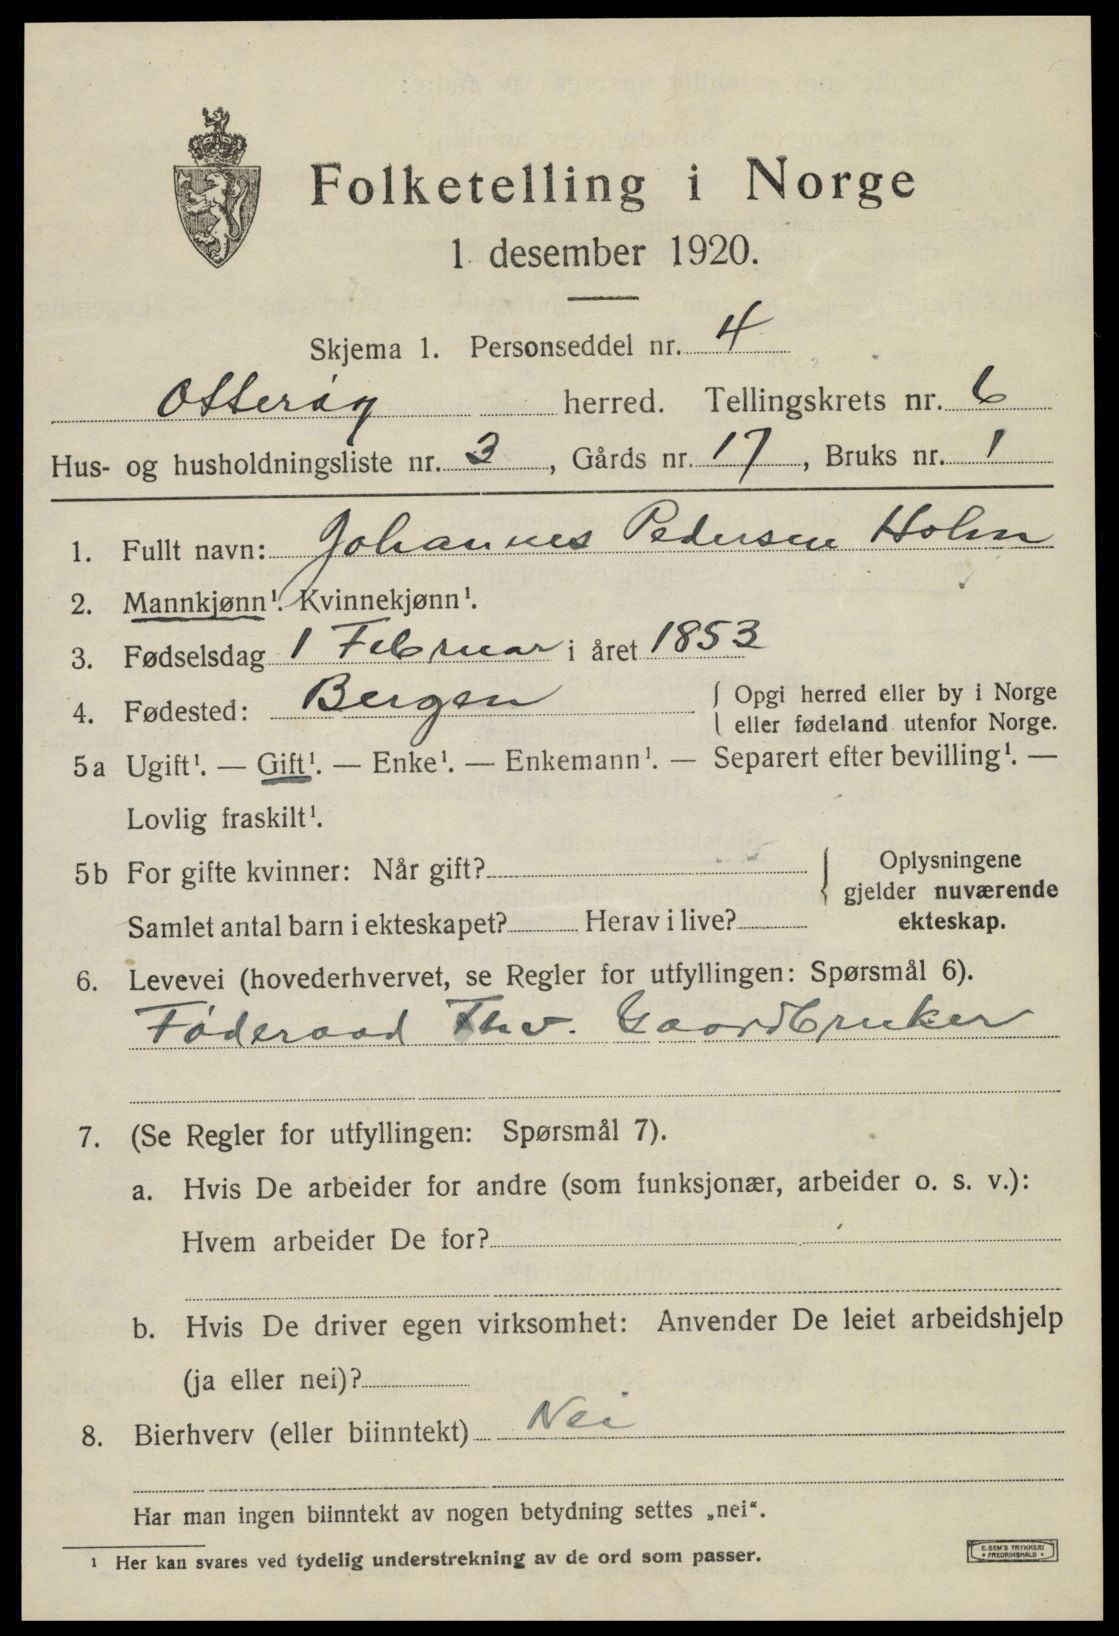 Folketelling i Norge
1. desember 1920.
Skjema 1. Personseddel nr. 4
Otterøy herred. Tellingskrets nr. 6
Hus- og husholdningsliste nr. 3, Gårds nr. 17, Bruks nr. 1
1. Fullt navn: Johannes Pedersen Holm
2. Mannkjønn¹. Kvinnekjønn¹.
3. Fødselsdag 1 Februar i året 1853
4. Fødested: Bergen { Opgi herred eller by i Norge
eller fødeland utenfor Norge.
5a Ugift¹. — Gift¹. — Enke¹. — Enkemann¹. — Separert efter bevilling¹. —
Lovlig fraskilt¹.
5b For gifte kvinner: Når gift? { Oplysningene
gjelder nuværende
Samlet antal barn i ekteskapet? Herav i live? ekteskap.
6. Levevei (hovederhvervet, se Regler for utfyllingen: Spørsmål 6).
Føderaad Fhv. Gaardbruker
7. (Se Regler for utfyllingen: Spørsmål 7).
a. Hvis De arbeider for andre (som funksjonær, arbeider o. s. v.):
Hvem arbeider De for?
b. Hvis De driver egen virksomhet: Anvender De leiet arbeidshjelp
(ja eller nei)?
8. Bierhverv (eller biinntekt) Nei
Har man ingen biinntekt av nogen betydning settes „nei“.
¹ Her kan svares ved tydelig understrekning av de ord som passer.
E. SEM'S TRYKKERI
• FREDRIKSHALD •